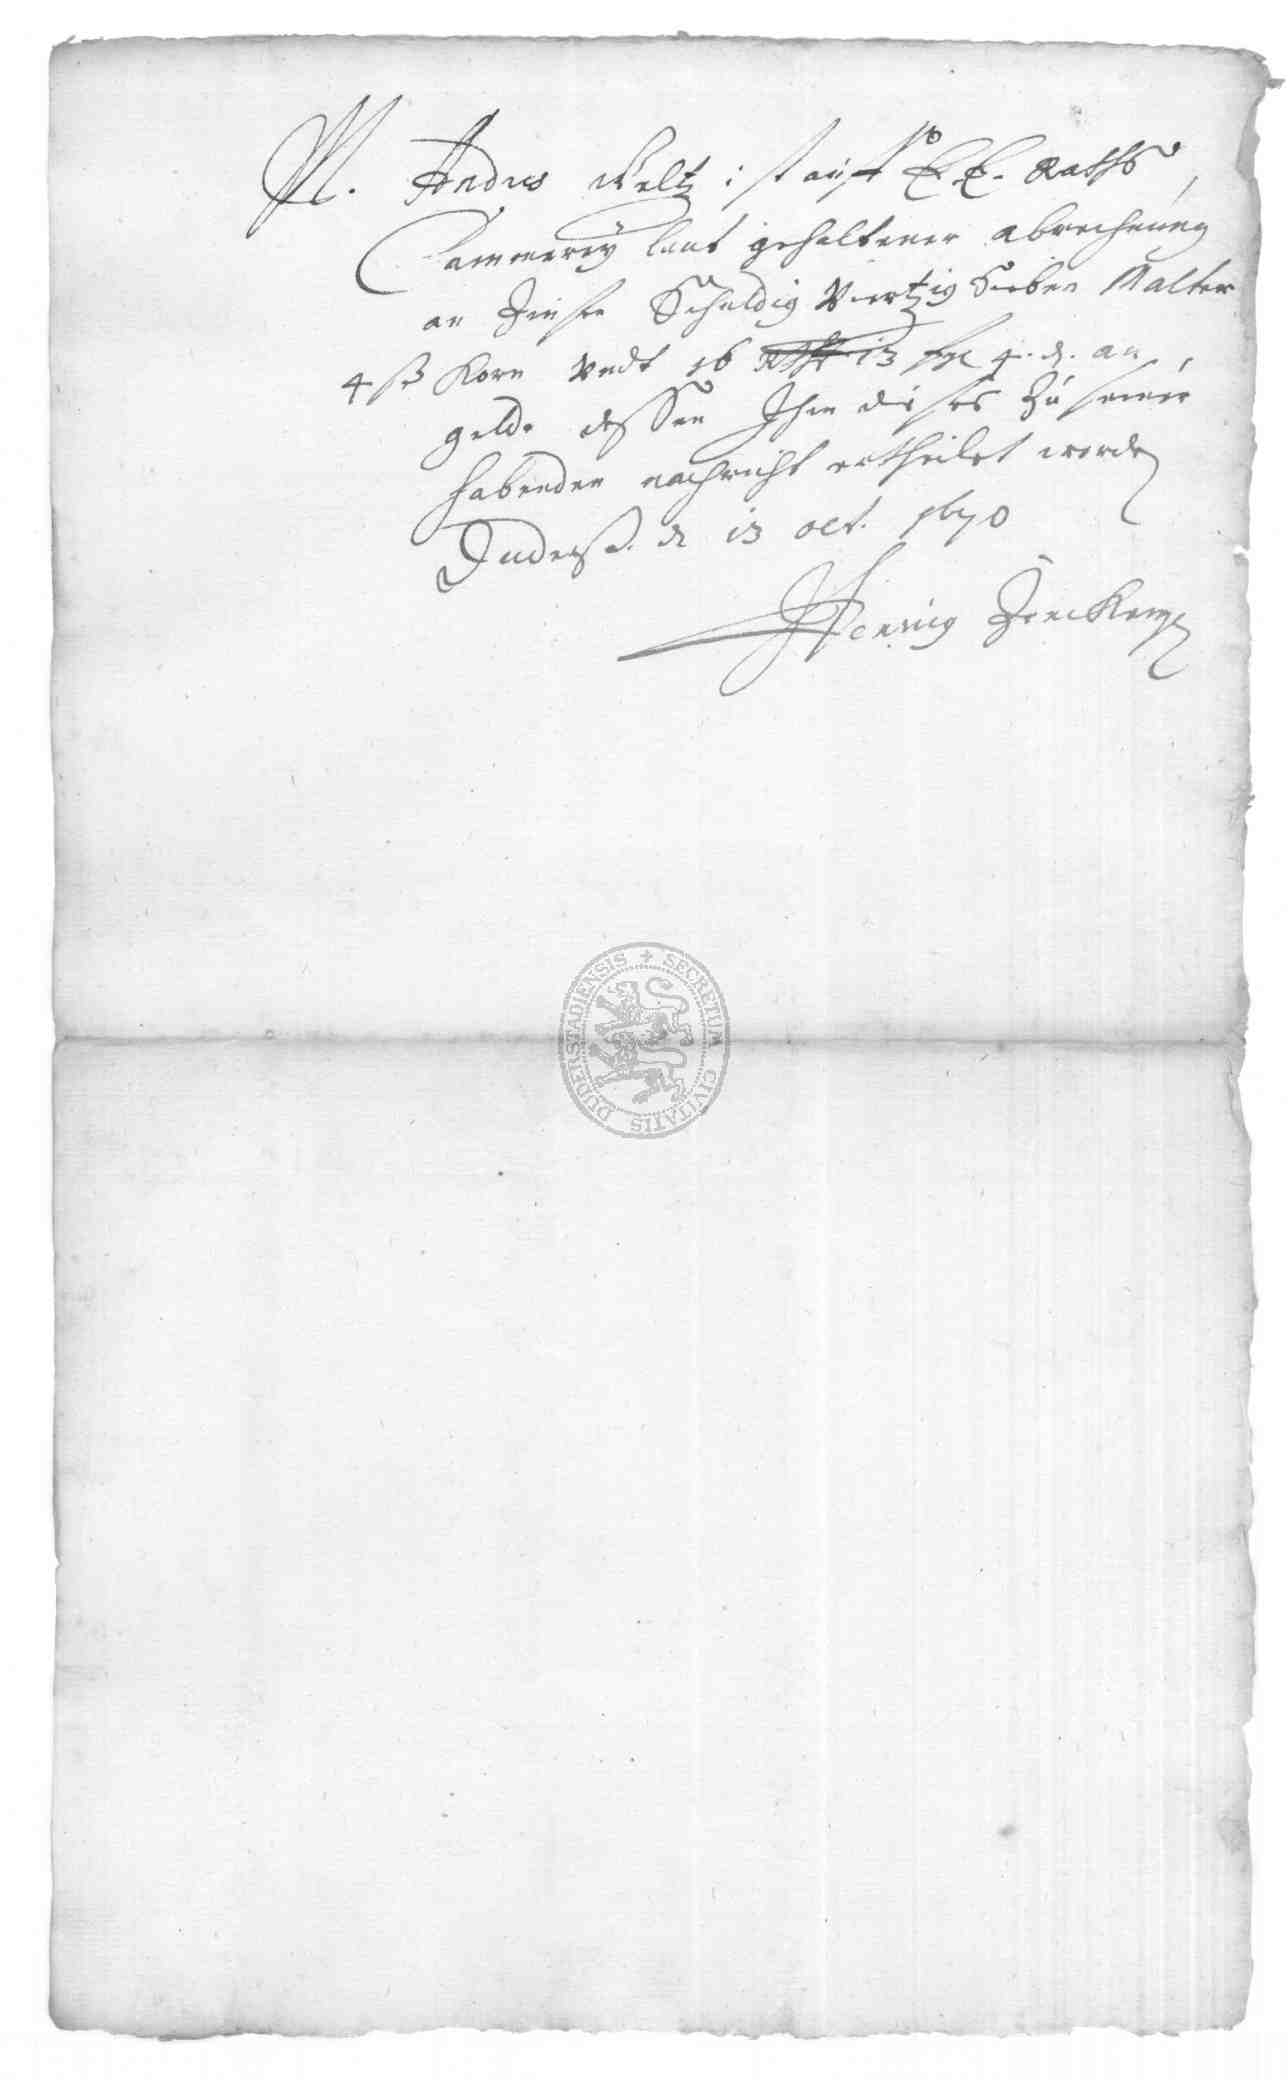 M. Andres Weltz ist auff E. E. Raths
Cammerey laut gehaltener abrechnung
an Zinse Schuldig Viertzig Sieben Malter
4 ß Korn Undt 16 13 4. d. an
gelde dessen Ihm dieses Zu seiner
habenden nachricht ertheilet worden
Duderst. d 13 oct. 1670
Henning
SECRETUM CIVITATIS DUDERSTADIENSIS